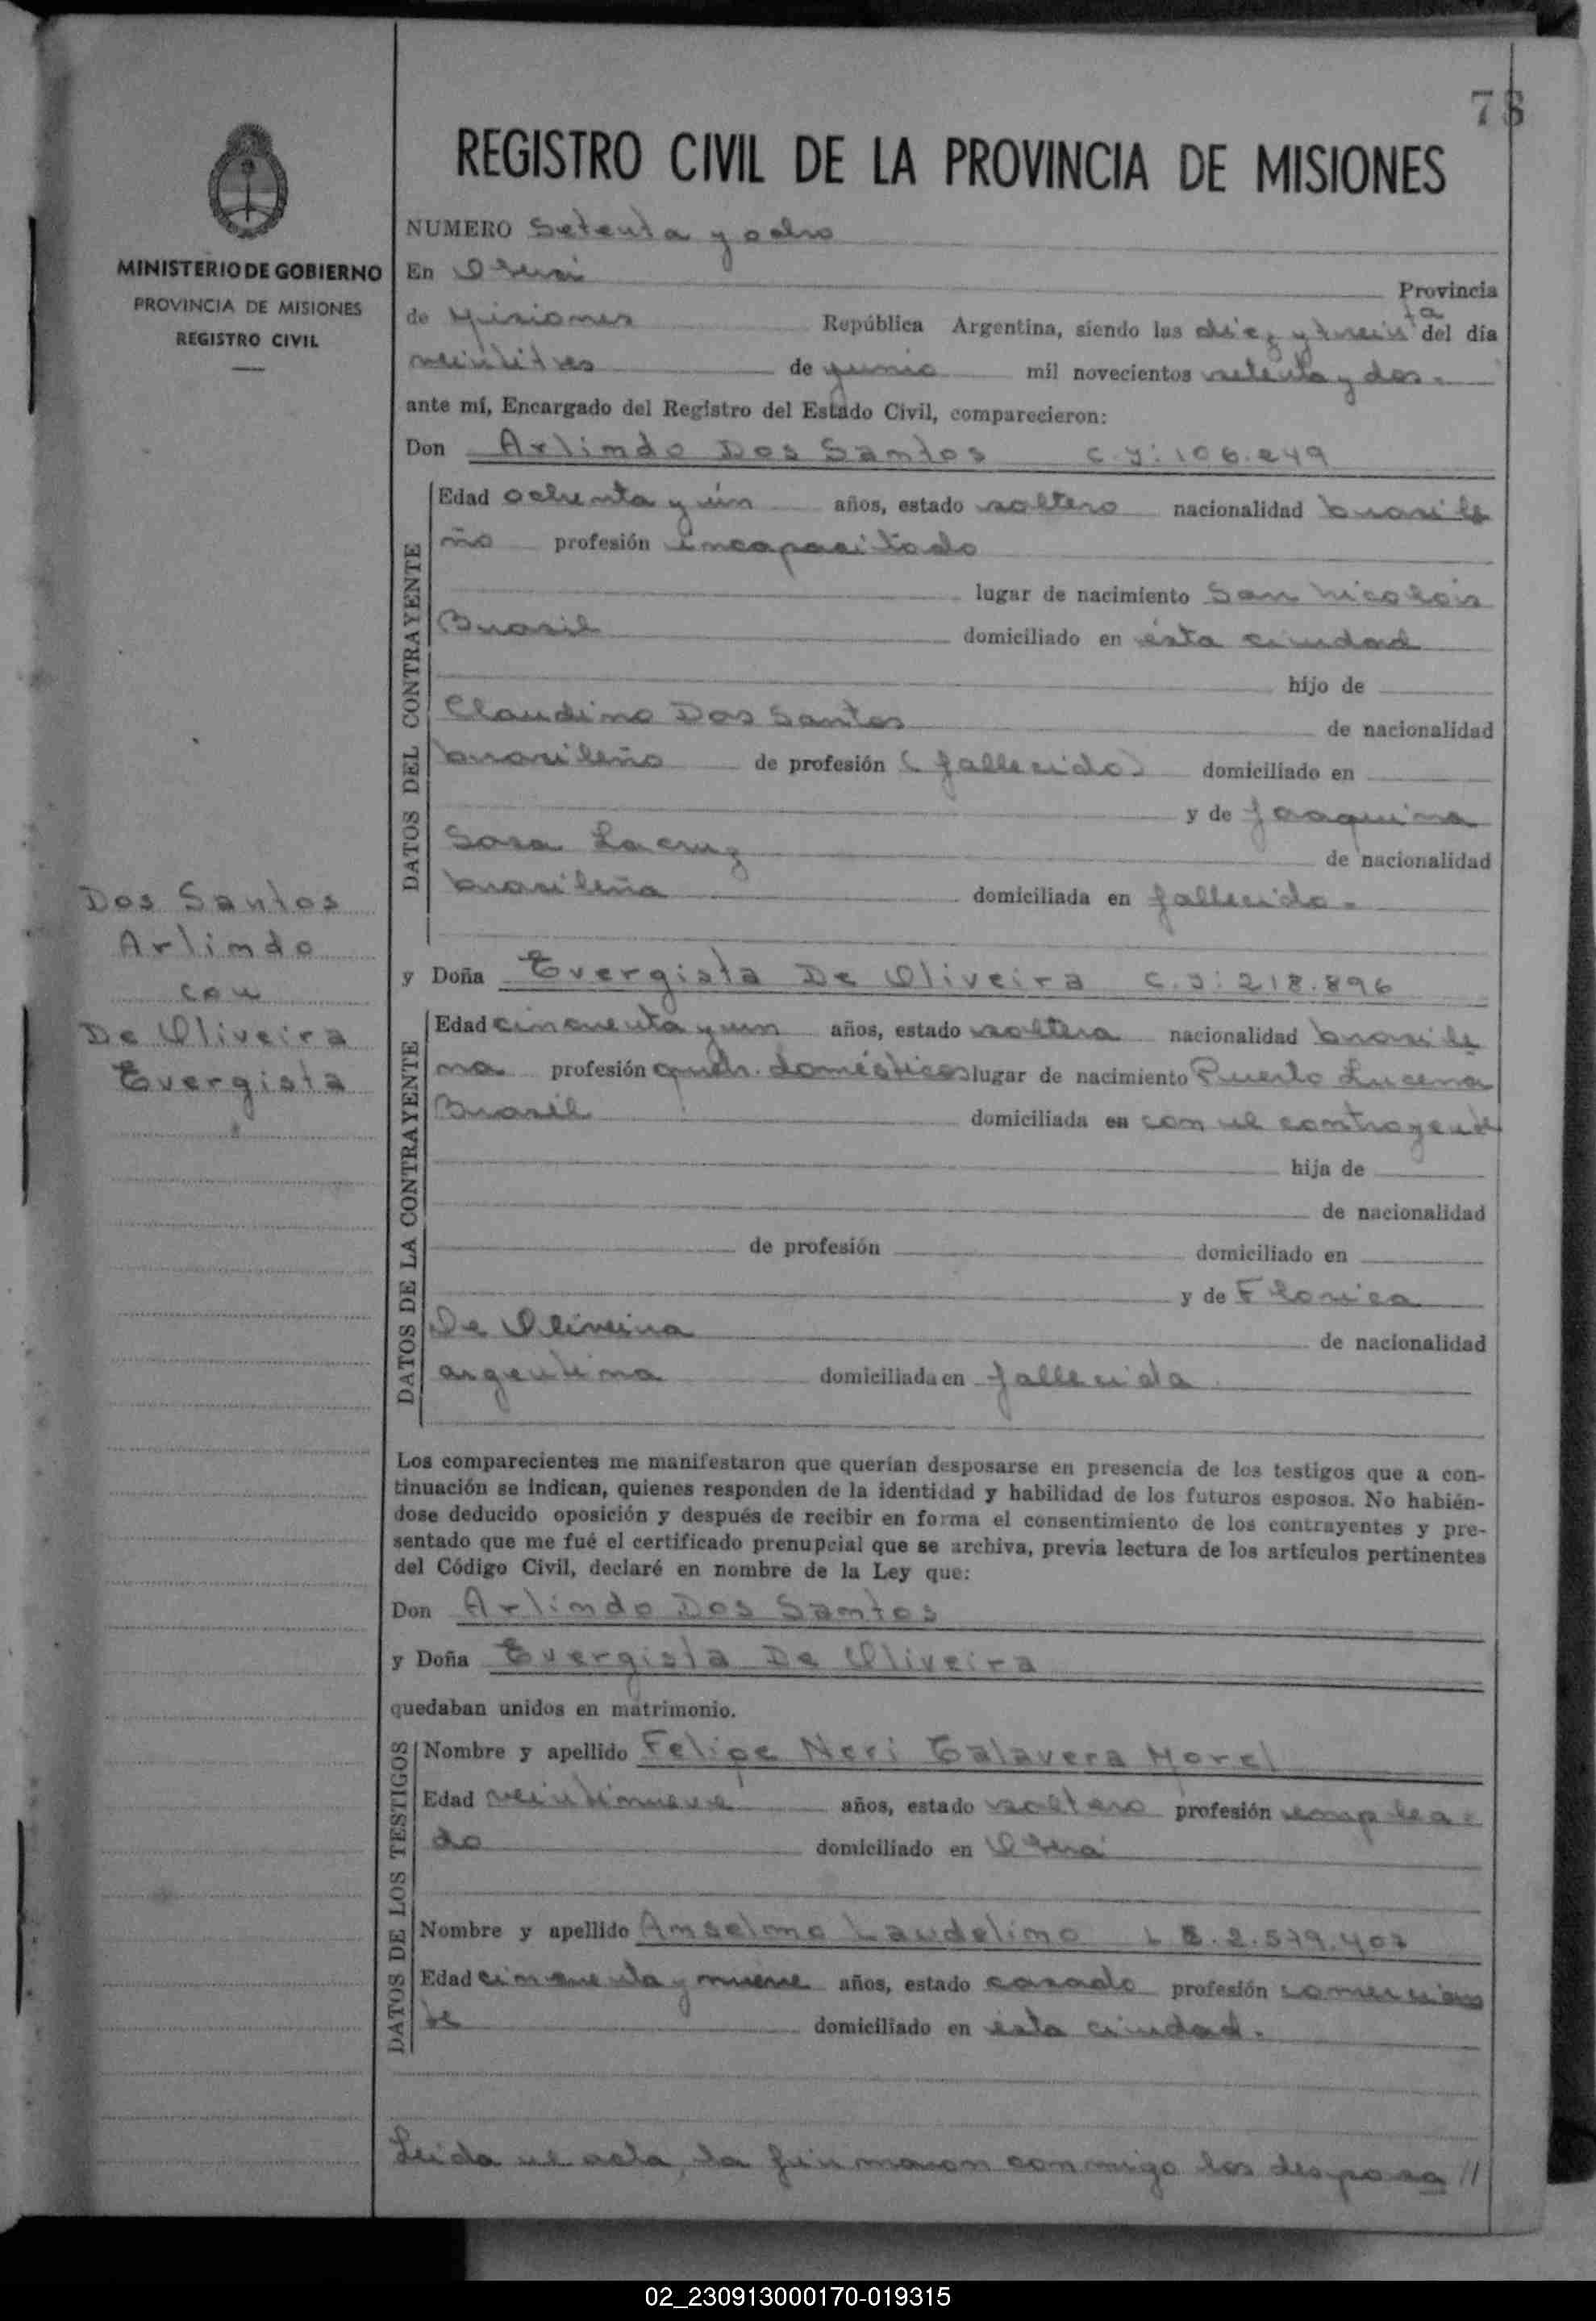 78
REGISTRO CIVIL DE LA PROVINCIA DE MISIONES
MINISTERIO DE GOBIERNO
PROVINCIA DE MISIONES
REGISTRO CIVIL
NUMERO Setenta y ocho
En Oberá Provincia
de Misiones República Argentina, siendo las diez y treinta del día
veintitres de junio mil novecientos setenta y dos.
ante mí, Encargado del Registro del Estado Civil, comparecieron:
Don Arlindo Dos Santos C.I: 106.249
DATOS DEL CONTRAYENTE
Edad ochenta y ún años, estado soltero nacionalidad brasile
ño profesión incapacitado
lugar de nacimiento San Nicolás
Brasil domiciliado en ésta ciudad
hijo de
Claudino Dos Santos de nacionalidad
brasileño de profesión (fallecido) domiciliado en
y de Joaquina
Sosa Lacruz de nacionalidad
brasileña domiciliada en fallecida.
Dos Santos
Arlindo
con
De Oliveira
Evergista
y Doña Evergista De Oliveira C.I: 218.896
DATOS DE LA CONTRAYENTE
Edad cincuenta y un años, estado soltera nacionalidad brasile
ña profesión queh. domésticos lugar de nacimiento Puerto Lucena
Brasil domiciliada en con el contrayente
hija de
de nacionalidad
de profesión domiciliado en
y de Florica
De Oliveira de nacionalidad
argentina domiciliada en fallecida.
Los comparecientes me manifestaron que querían desposarse en presencia de los testigos que a con-
tinuación se indican, quienes responden de la identidad y habilidad de los futuros esposos. No habién-
dose deducido oposición y después de recibir en forma el consentimiento de los contrayentes y pre-
sentado que me fué el certificado prenupcial que se archiva, previa lectura de los artículos pertinentes
del Código Civil, declaré en nombre de la Ley que:
Don Arlindo Dos Santos
y Doña Evergista De Oliveira
quedaban unidos en matrimonio.
DATOS DE LOS TESTIGOS
Nombre y apellido Felipe Neri Talavera Morel
Edad veintinueve años, estado soltero profesión emplea-
do domiciliado en Oberá
Nombre y apellido Anselmo Laudelino L E. 2.579.407
Edad cincuenta y nueve años, estado casado profesión comercian
te domiciliado en ésta ciudad.
Leida el acta, la firmaron conmigo los desposa //
02_230913000170-019315